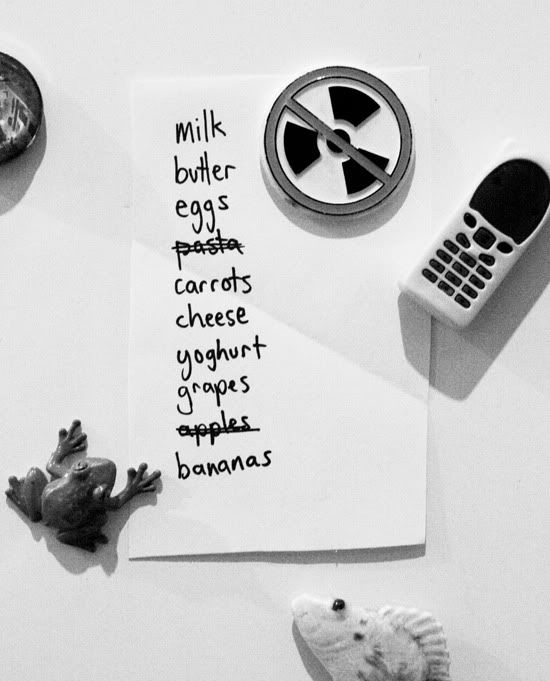 milk
butter
eggs
pasta
carrots
cheese
yoghurt
grapes
apples
bananas